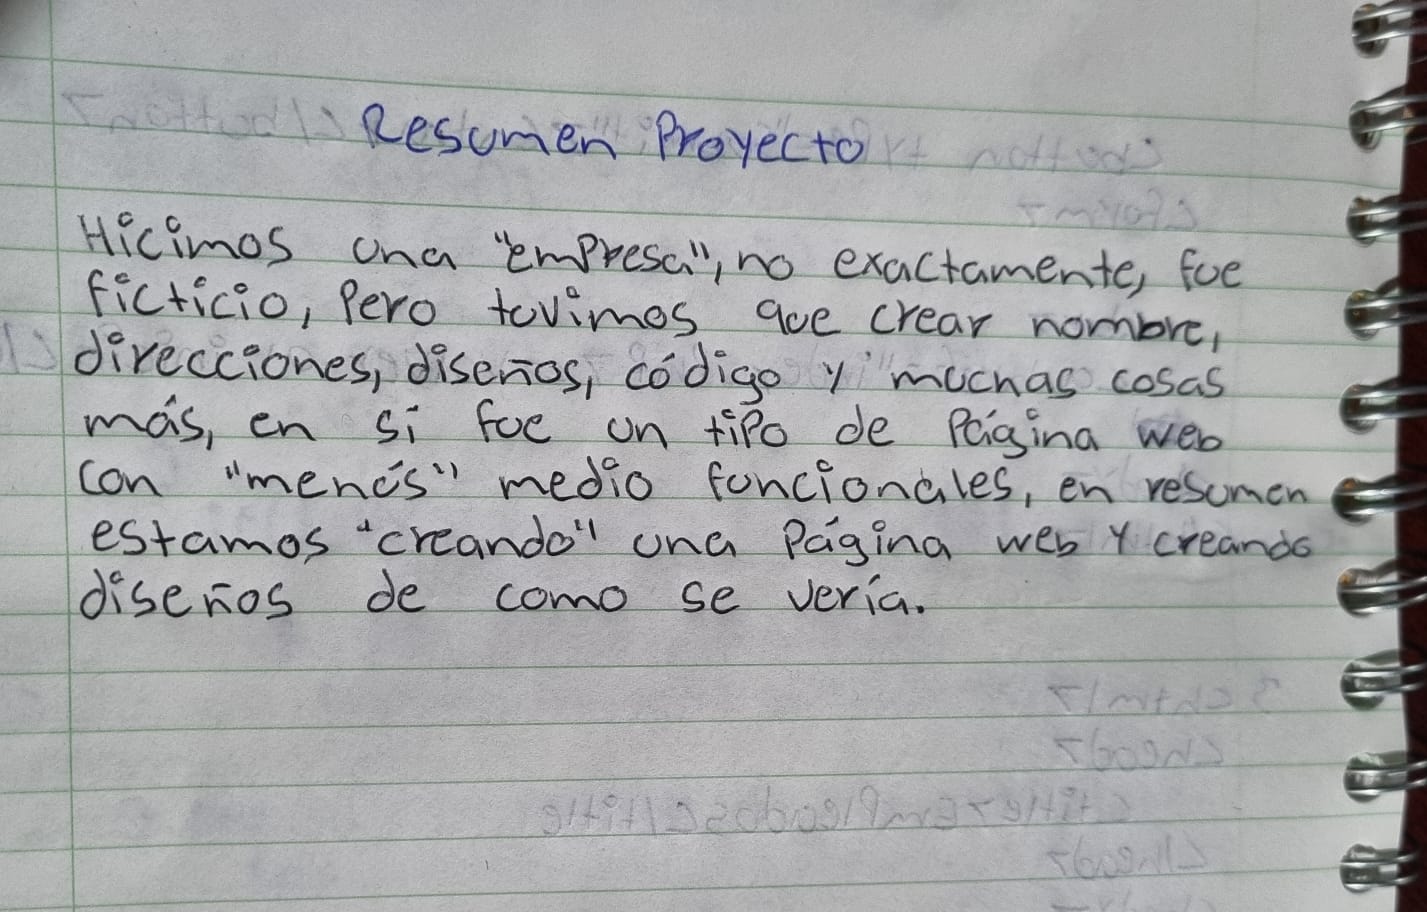 Resumen Proyecto
Hicimos una "empresa", no exactamente, fue
ficticio, Pero tuvimos que crear nombre,
direcciones, diseños, código y muchas cosas
más, en sí fue un tipo de Página web
con "menús" medio funcionales, en resumen
estamos "creando" una Página web y creando
diseños de como se vería.